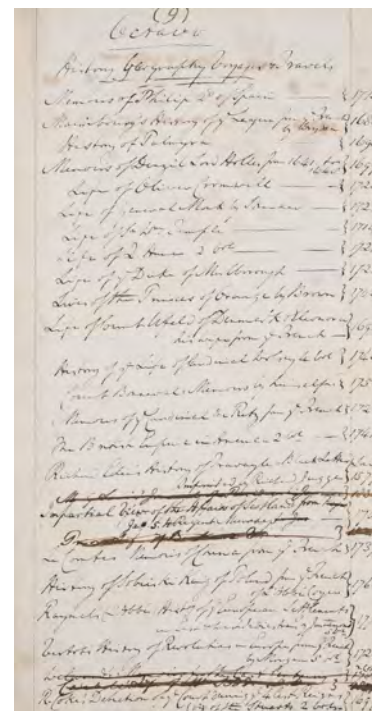 (9)
Octavo
History Geography Voyages & Travels
Memoirs of Philip 2d of Spain — 171
Maimbourg's History of ye League from ye Fren 168
by Dryden
History of Palmyra 169
Memoires of Denzil Lord Holles from 1641, to 1648 169
Life of Oliver Cromwell — 172
Life of General Monk by Skinner — 172
Life of Sr Wm Temple — 171
Life of Q Anne 2 vol — 172
Life of ye Duke of Marlborough — 172
Lives of the Princes of Orange by Brown 170
Life of Count Ulfeld of Denmark &
from ye French — 169
History of ye Life of Cardinal Wolsey 4 vol 174
Count Bonneval's Memoirs by himself 175
Memoirs of ye Cardinal de Retz from ye French 172
The British Empire in America 2 vol — 174
Richard Eden's History of Travayle Black Letter
Imprinted by Richard Jugge 157
Impartial View of the Affairs of Scotland from
Jas 5
Le Comtes Memoirs of China from ye French 173
History of Sobieski King of Poland from ye French
of Abbe Coyer 176
Raynal's (Abbe) History of European Settlements
in
5 vol
Vertots History of Revolutions in from ye French
5 vol 172
Detection of ye Court during ye
of the Stuarts 2 vol 169